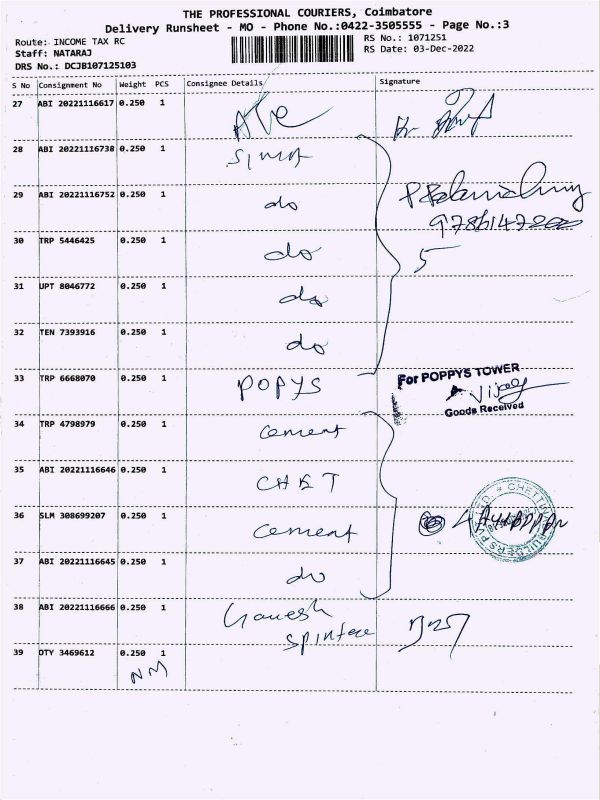 THE PROFESSIONAL COURIERS, Coimbatore
Delivery Runsheet - MO - Phone No.:0422-3505555 - Page No.:3
Route: INCOME TAX RC
Staff: NATARAJ
DRS No.: DCJB107125103
RS No.: 1071251
RS Date: 03-Dec-2022
S No Consignment No Weight PCS Consignee Details Signature
27 ABI 20221116617 0.250 1
28 ABI 20221116738 0.250 1
29 ABI 20221116752 0.250 1 do
30 TRP 5446425 0.250 1 do 5
31 UPT 8046772 0.250 1 do
32 TEN 7393916 0.250 1 do
33 TRP 6668070 0.250 1 POPYS
For POPPYS TOWER
Goods Received
34 TRP 4798979 0.250 1 cement
35 ABI 20221116646 0.250 1
36 SLM 308699207 0.250 1 cement
37 ABI 20221116645 0.250 1 do
38 ABI 20221116666 0.250 1 Ganesh
39 DTY 3469612 0.250 1
NM